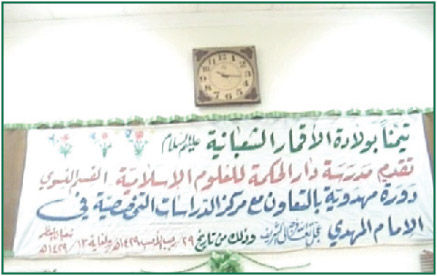 تيمناً بولادة الأقمار الشعبانية عليهم السلام
تقدم مدرسة دار الحكمة للعلوم الإسلامية القسم النسوي
دورة مهدوية بالتعاون مع مركز الدراسات التخصصية في
الامام المهدي وذلك من تاريخ ٢٩ رجب ١٤٢٩هـ ولغاية ١٣ شعبان ١٤٢٩هـ